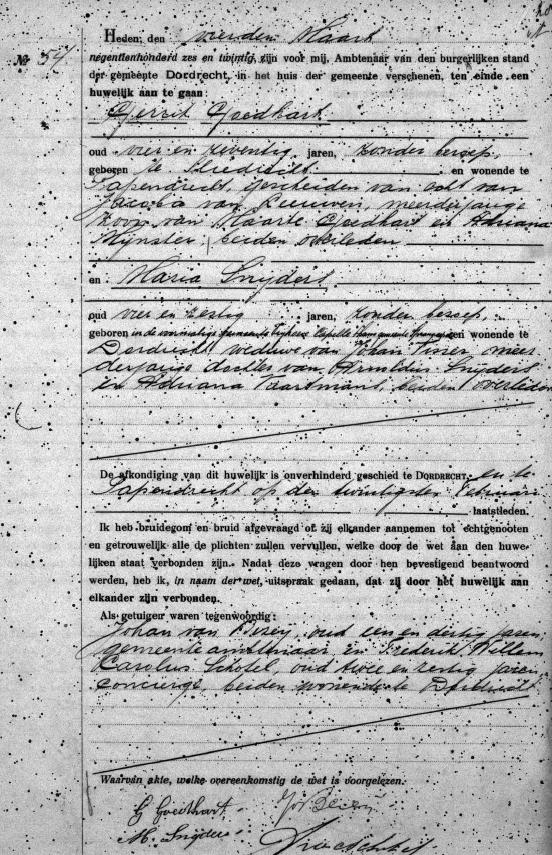 Heden, den vierden Maart
No 54 negentienhonderd zes en twintig, zijn voor mij, Ambtenaar van den burgerlijken stand
der gemeente DORDRECHT, in het huis der gemeente verschenen, ten einde een
huwelijk aan te gaan:
Gerrit Goedhart
oud vier en zeventig jaren, zonder beroep,
geboren te Sliedrecht en wonende te
Papendrecht, gescheiden van echt van
Jacoba van Leeuwen, meerderjarige
zoon van Maarte Goedhart en Adriana
beiden overleden
en Maria Snijders
oud vier en zestig jaren, zonder beroep,
geboren in de voormalige gemeente Capelle thans gemeente en wonende te
Dordrecht, weduwe van Johan Visser, meer
derjarige dochter van Arnoldus Snijders
en Adriana beiden overleden
De afkondiging van dit huwelijk is onverhinderd geschied te DORDRECHT en te
Papendrecht op den twintigsten Februari
laatstleden.
Ik heb bruidegom en bruid afgevraagd of zij elkander aannemen tot echtgenooten
en getrouwelijk alle de plichten zullen vervullen, welke door de wet aan den huwe-
lijken staat verbonden zijn. Nadat deze vragen door hen bevestigend beantwoord
werden, heb ik, in naam der wet, uitspraak gedaan, dat zij door het huwelijk aan
elkander zijn verbonden.
Als getuigen waren tegenwoordig:
Johan van oud een en dertig jaren,
gemeenteambtenaar en Frederik Willem
Carolus Schotel, oud twee en zestig jaren,
concierge, beiden wonende te Dordrecht
Waarvan akte, welke overeenkomstig de wet is voorgelezen.
G Goedhart.
M. Snijders